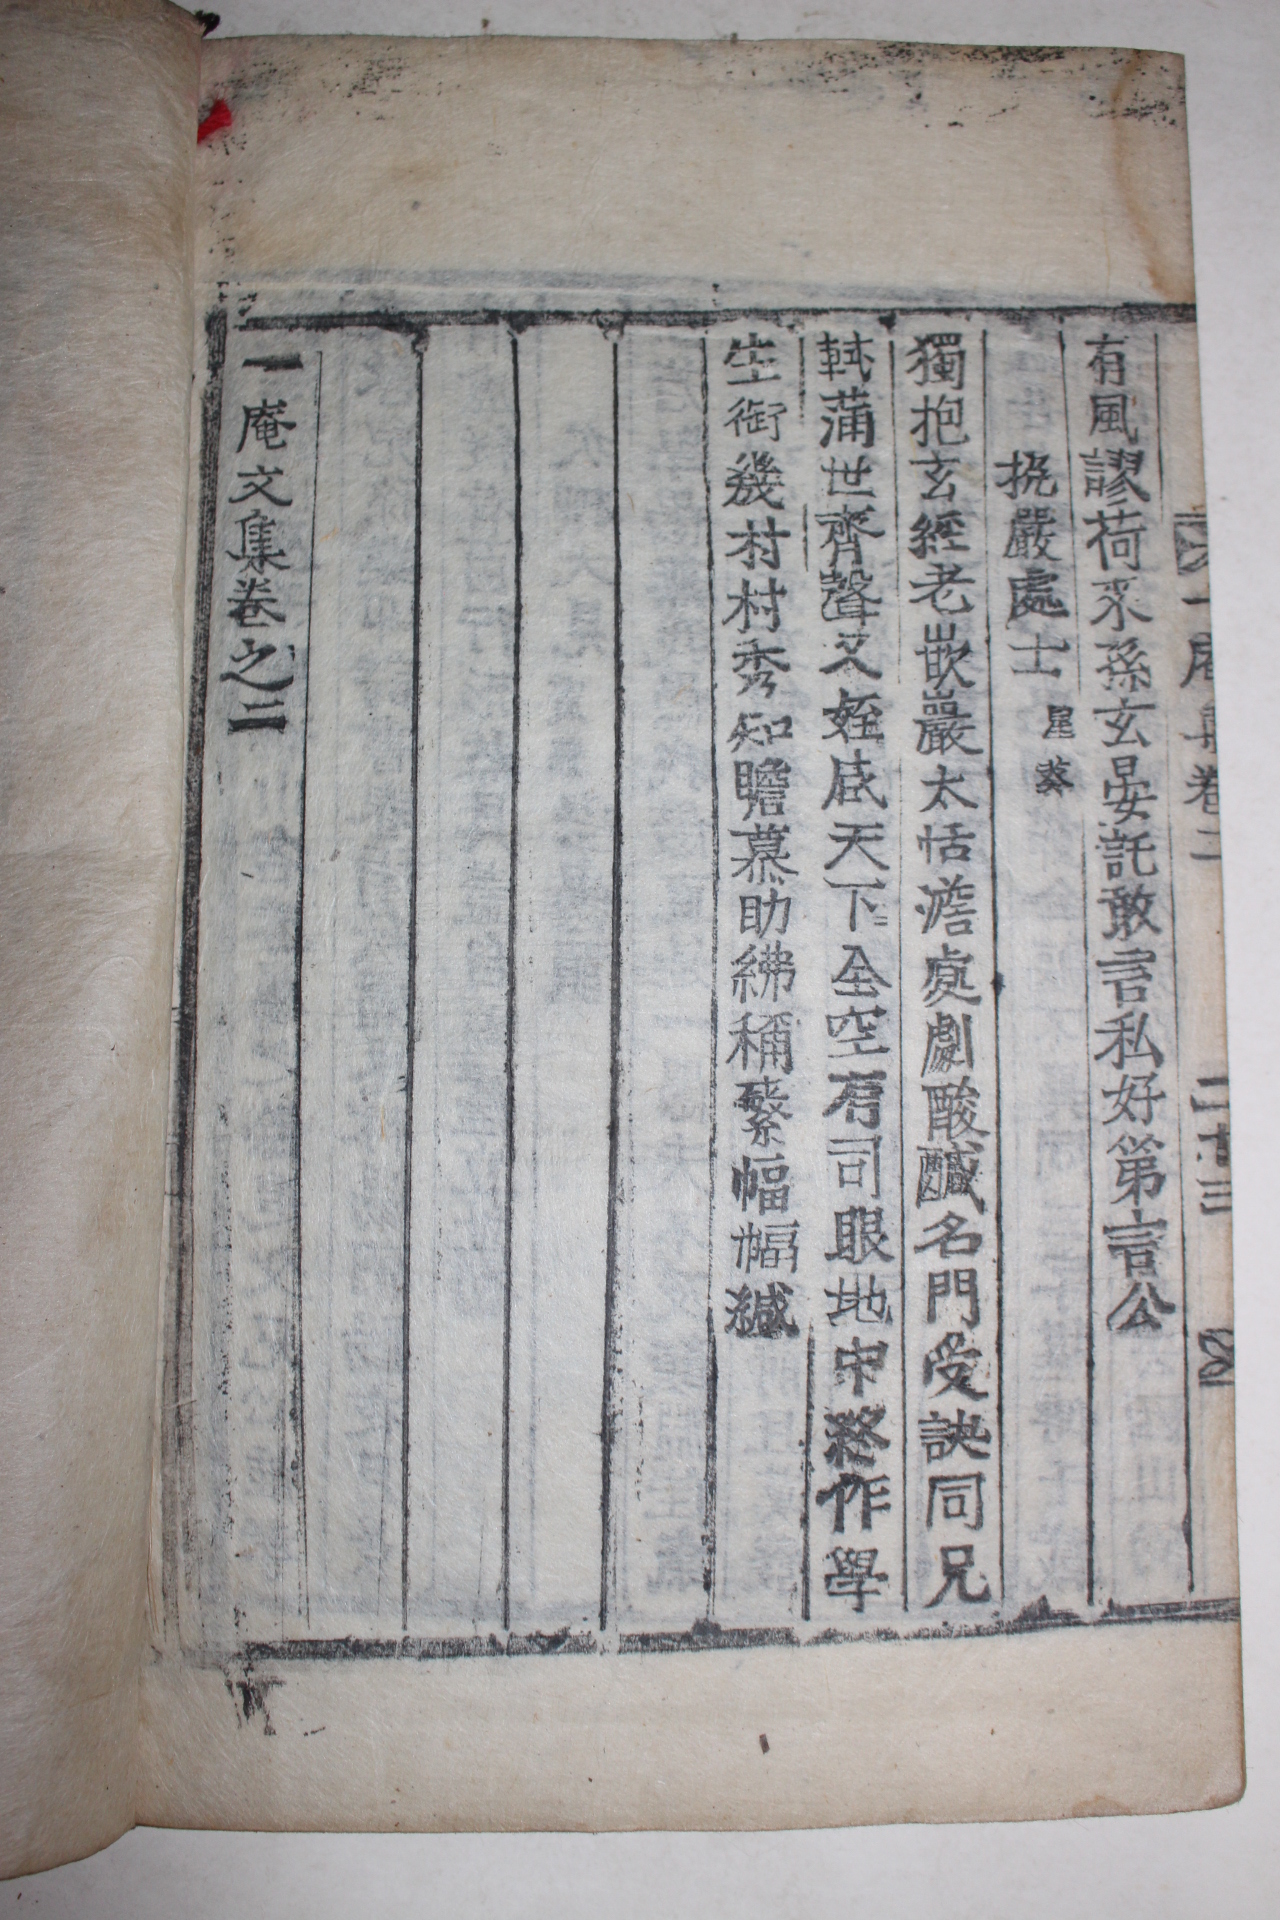 有風謬荷來孫玄晏託敢言私好第言公
挽嚴處士 星葵
獨抱玄經老嵌巖太恬澹處劇酸醎名門受訣同兄
軾蒲世齊聲又姪咸天下全空有司眼地中終作學
生銜幾村村秀知瞻慕助紼稱繁幅幅緘
一庵文集卷之二
一庵集卷二
二十三